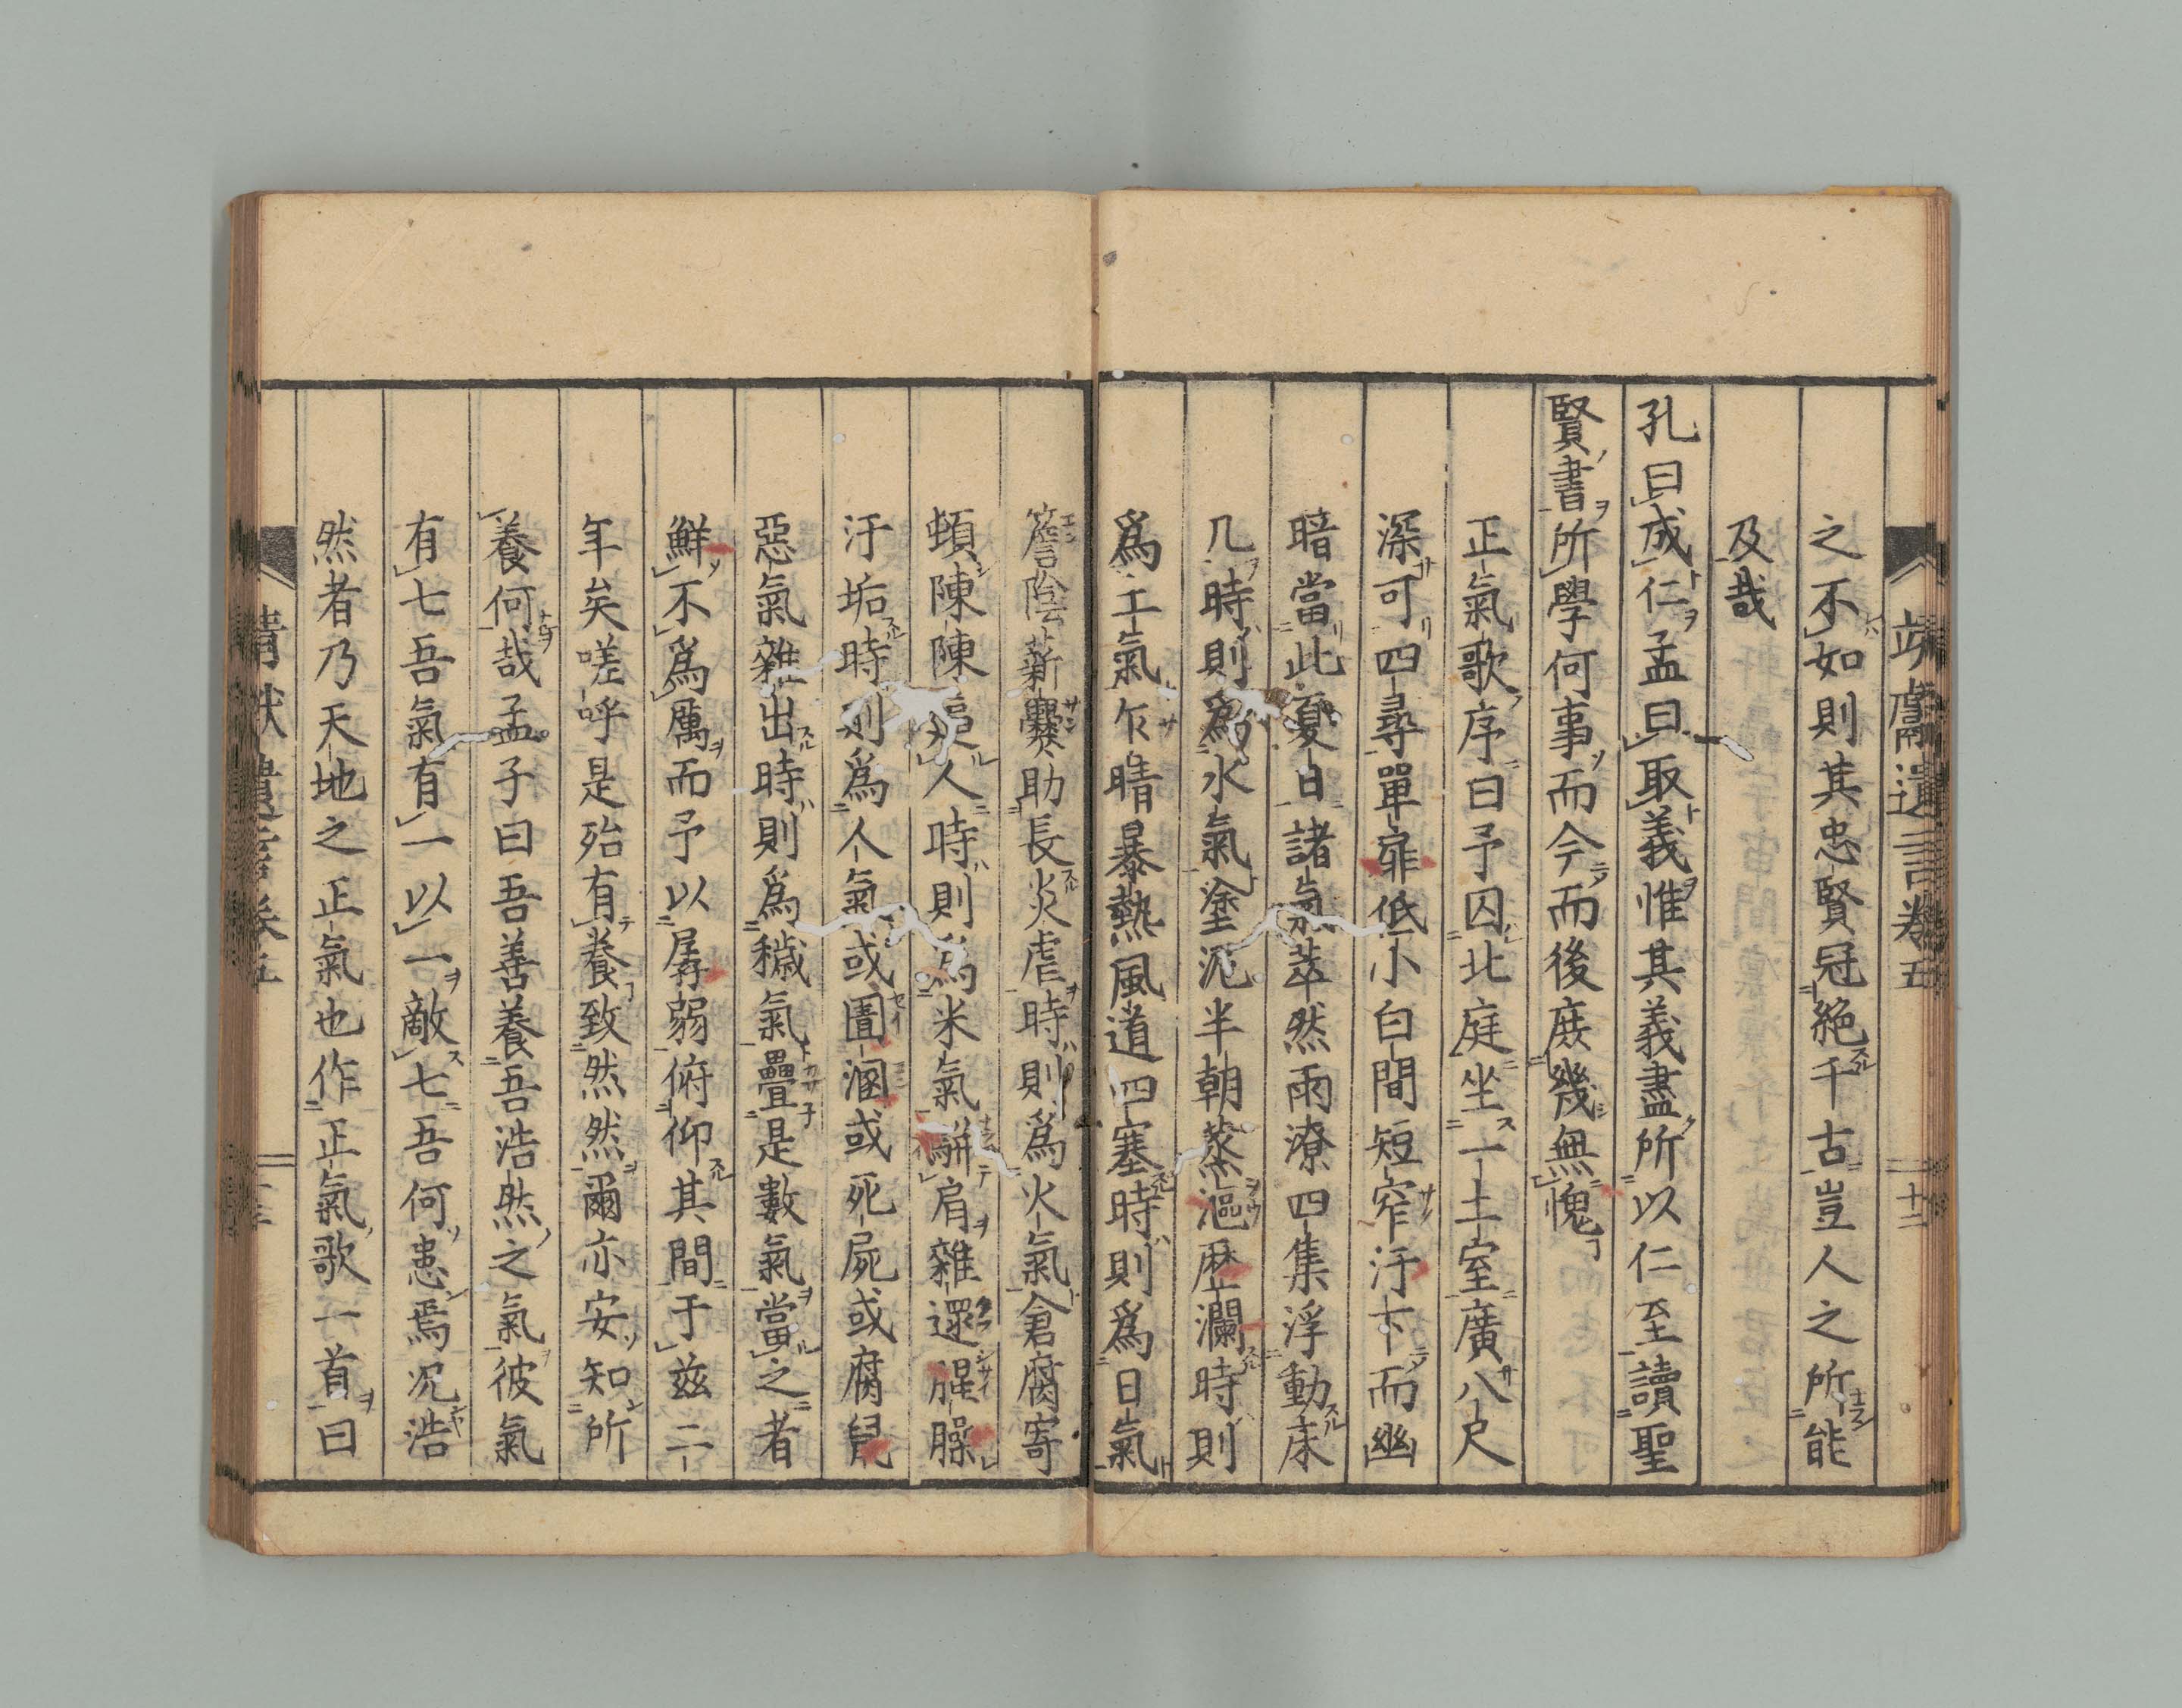 靖獻遺言卷五 十二
之不如則其忠賢冠絶千古豈人之所能
及哉
孔曰成仁孟曰取義惟其義盡所以仁至讀聖
賢書所學何事而今而後庶幾無愧
正氣歌序曰予囚北庭坐一土室廣八尺
深可四尋單扉低小白間短窄汙下而幽
暗當此夏日諸氣萃然雨潦四集浮動床
几時則爲水氣塗泥半朝蒸漚歴瀾時則
爲土氣乍晴暴熱風道四塞時則爲日氣
簷陰薪爨助長炎虐時則爲火氣倉腐寄
頓陳陳逼人時則爲米氣駢肩雜遝腥臊
汙垢時則爲人氣或圊溷或死屍或腐鼠
惡氣雜出時則爲穢氣疊是數氣當之者
鮮不爲厲而予以孱弱俯仰其間于兹二
年矣嗟呼是殆有養致然然爾亦安知所
養何哉孟子曰吾善養吾浩然之氣彼氣
有七吾氣有一以一敵七吾何患焉况浩
然者乃天地之正氣也作正氣歌一首曰
靖獻遺言卷五